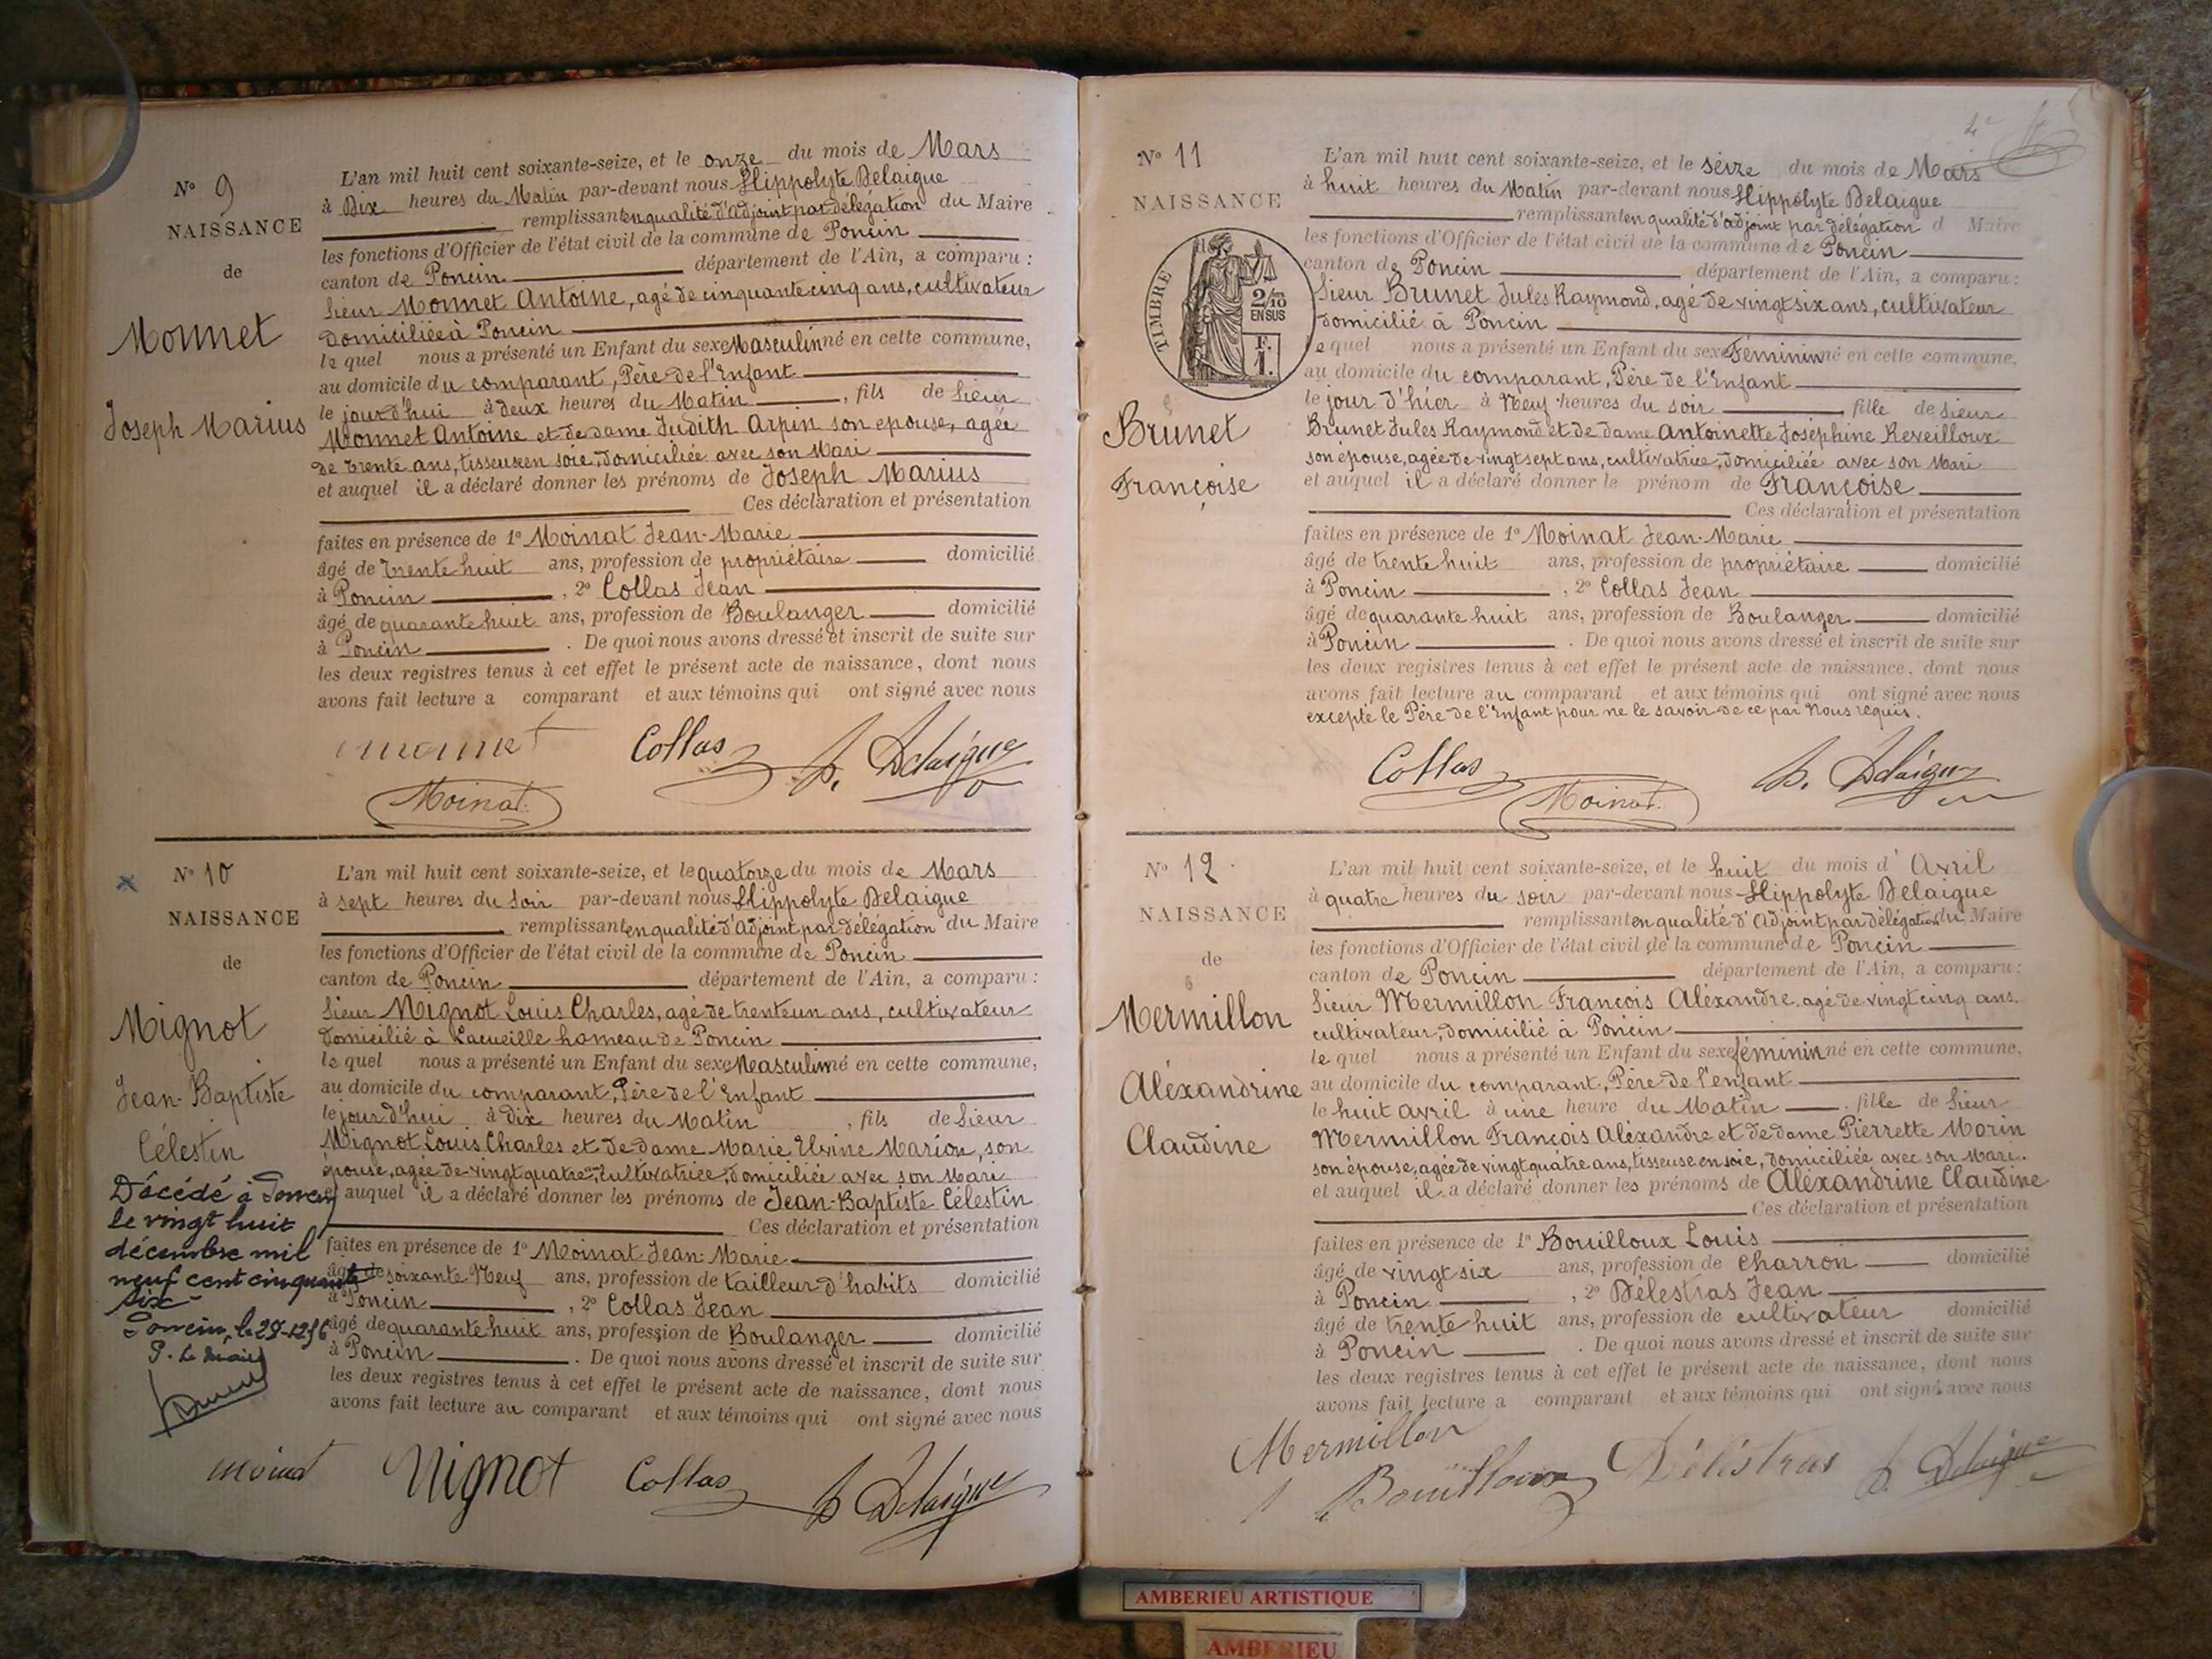 N° 9
NAISSANCE
de
Monnet
Joseph Marius
L'an mil huit cent soixante-seize, et le onze du mois de Mars
à Dix heures du Matin par-devant nous Hippolyte Delaigue
remplissant en qualité d'adjoint par délégation du Maire
les fonctions d'Officier de l'état civil de la commune de Poncin
canton de Poncin département de l'Ain, a comparu :
Sieur Monnet Antoine, agé de cinquante cinq ans, cultivateur
domiciliée à Poncin
le quel nous a présenté un Enfant du sexe Masculin né en cette commune,
au domicile du comparant, Père de l'Enfant
le jourd'hui à deux heures du Matin , fils de Sieur
Monnet Antoine et de dame Judith Arpin son epouse, agée
de trente ans, tisseuse en soie, domiciliée avec son Mari
et auquel il a déclaré donner les prénoms de Joseph Marius
Ces déclaration et présentation
faites en présence de 1° Moinat Jean-Marie
âgé de trente huit ans, profession de propriétaire domicilié
à Poncin , 2° Collas Jean
âgé de quarante huit ans, profession de Boulanger domicilié
à Poncin . De quoi nous avons dressé et inscrit de suite sur
les deux registres tenus à cet effet le présent acte de naissance, dont nous
avons fait lecture a comparant et aux témoins qui ont signé avec nous
monnet Collas h. Delaigue
Moinat
N° 10
NAISSANCE
de
Mignot
Jean-Baptiste
Célestin
Décédé à Poncin
le vingt huit
décembre mil
neuf cent cinquante
six
Poncin, le 29-12-56
P. Le Maire
L'an mil huit cent soixante-seize, et le quatorze du mois de Mars
à sept heures du Soir par-devant nous Hippolyte Delaigue
remplissant en qualité d'adjoint par délégation du Maire
les fonctions d'Officier de l'état civil de la commune de Poncin
canton de Poncin département de l'Ain, a comparu :
Sieur Mignot Louis Charles, agé de trente un ans, cultivateur
domicilié à Lacueille hameau de Poncin
le quel nous a présenté un Enfant du sexe Masculin né en cette commune,
au domicile du comparant, Père de l'Enfant
le jourd'hui à dix heures du Matin , fils de Sieur
Mignot Louis Charles et de dame Marie Elvine Marion, son
épouse, agée de vingt quatre ans, cultivatrice, domiciliée avec son Mari
et auquel il a déclaré donner les prénoms de Jean-Baptiste Célestin
Ces déclaration et présentation
faites en présence de 1° Moinat Jean-Marie
âgé de soixante Neuf ans, profession de tailleur d'habits domicilié
à Poncin , 2° Collas Jean
âgé de quarante huit ans, profession de Boulanger domicilié
à Poncin . De quoi nous avons dressé et inscrit de suite sur
les deux registres tenus à cet effet le présent acte de naissance, dont nous
avons fait lecture au comparant et aux témoins qui ont signé avec nous
moinat Mignot Collas h Delaigue
4e
N° 11
NAISSANCE
TIMBRE
2/10
EN SUS
F.
1.
Brunet
Françoise
L'an mil huit cent soixante-seize, et le seize du mois de Mars
à huit heures du Matin par-devant nous Hippolyte Delaigue
remplissant en qualité d'adjoint par délégation d Maire
les fonctions d'Officier de l'état civil de la commune de Poncin
canton de Poncin département de l'Ain, a comparu :
Sieur Brunet Jules Raymond, agé de vingt six ans, cultivateur
domicilié à Poncin
le quel nous a présenté un Enfant du sexe Féminin né en cette commune,
au domicile du comparant, Père de l'Enfant
le jour d'hier à Neuf heures du soir fille de Sieur
Brunet Jules Raymond et de dame Antoinette Joséphine Reveilloux
son épouse, agée de vingt sept ans, cultivatrice, domiciliée avec son Mari
et auquel il a déclaré donner le prénom de Françoise
Ces déclaration et présentation
faites en présence de 1° Moinat Jean-Marie
âgé de trente huit ans, profession de propriétaire domicilié
à Poncin , 2° Collas Jean
âgé de quarante huit ans, profession de Boulanger domicilié
à Poncin . De quoi nous avons dressé et inscrit de suite sur
les deux registres tenus à cet effet le présent acte de naissance, dont nous
avons fait lecture au comparant et aux témoins qui ont signé avec nous
excepté le Père de l'Enfant pour ne le savoir de ce par Nous requis.
Collas Moinat h. Delaigue
N° 12
NAISSANCE
de
Mermillon
Aléxandrine
Claudine
L'an mil huit cent soixante-seize, et le huit du mois d' Avril
à quatre heures du soir par-devant nous Hippolyte Delaigue
remplissant en qualité d'adjoint par délégation du Maire
les fonctions d'Officier de l'état civil de la commune de Poncin
canton de Poncin département de l'Ain, a comparu :
Sieur Mermillon François Aléxandre, agé de vingt cinq ans,
cultivateur, domicilié à Poncin
le quel nous a présenté un Enfant du sexe féminin né en cette commune,
au domicile du comparant, Père de l'enfant
le huit avril à une heure du Matin , fille de Sieur
Mermillon François Aléxandre et de dame Pierrette Morin
son épouse, agée de vingt quatre ans, tisseuse en soie, domiciliée avec son Mari.
et auquel il a déclaré donner les prénoms de Aléxandrine Claudine
Ces déclaration et présentation
faites en présence de 1° Bouilloux Louis
âgé de vingt six ans, profession de charron domicilié
à Poncin , 2° Délestras Jean
âgé de trente huit ans, profession de cultivateur domicilié
à Poncin . De quoi nous avons dressé et inscrit de suite sur
les deux registres tenus à cet effet le présent acte de naissance, dont nous
avons fait lecture a comparant et aux témoins qui ont signé avec nous
Mermillon
Bouilloux Déléstras h. Delaigue
AMBERIEU ARTISTIQUE
AMBERIEU